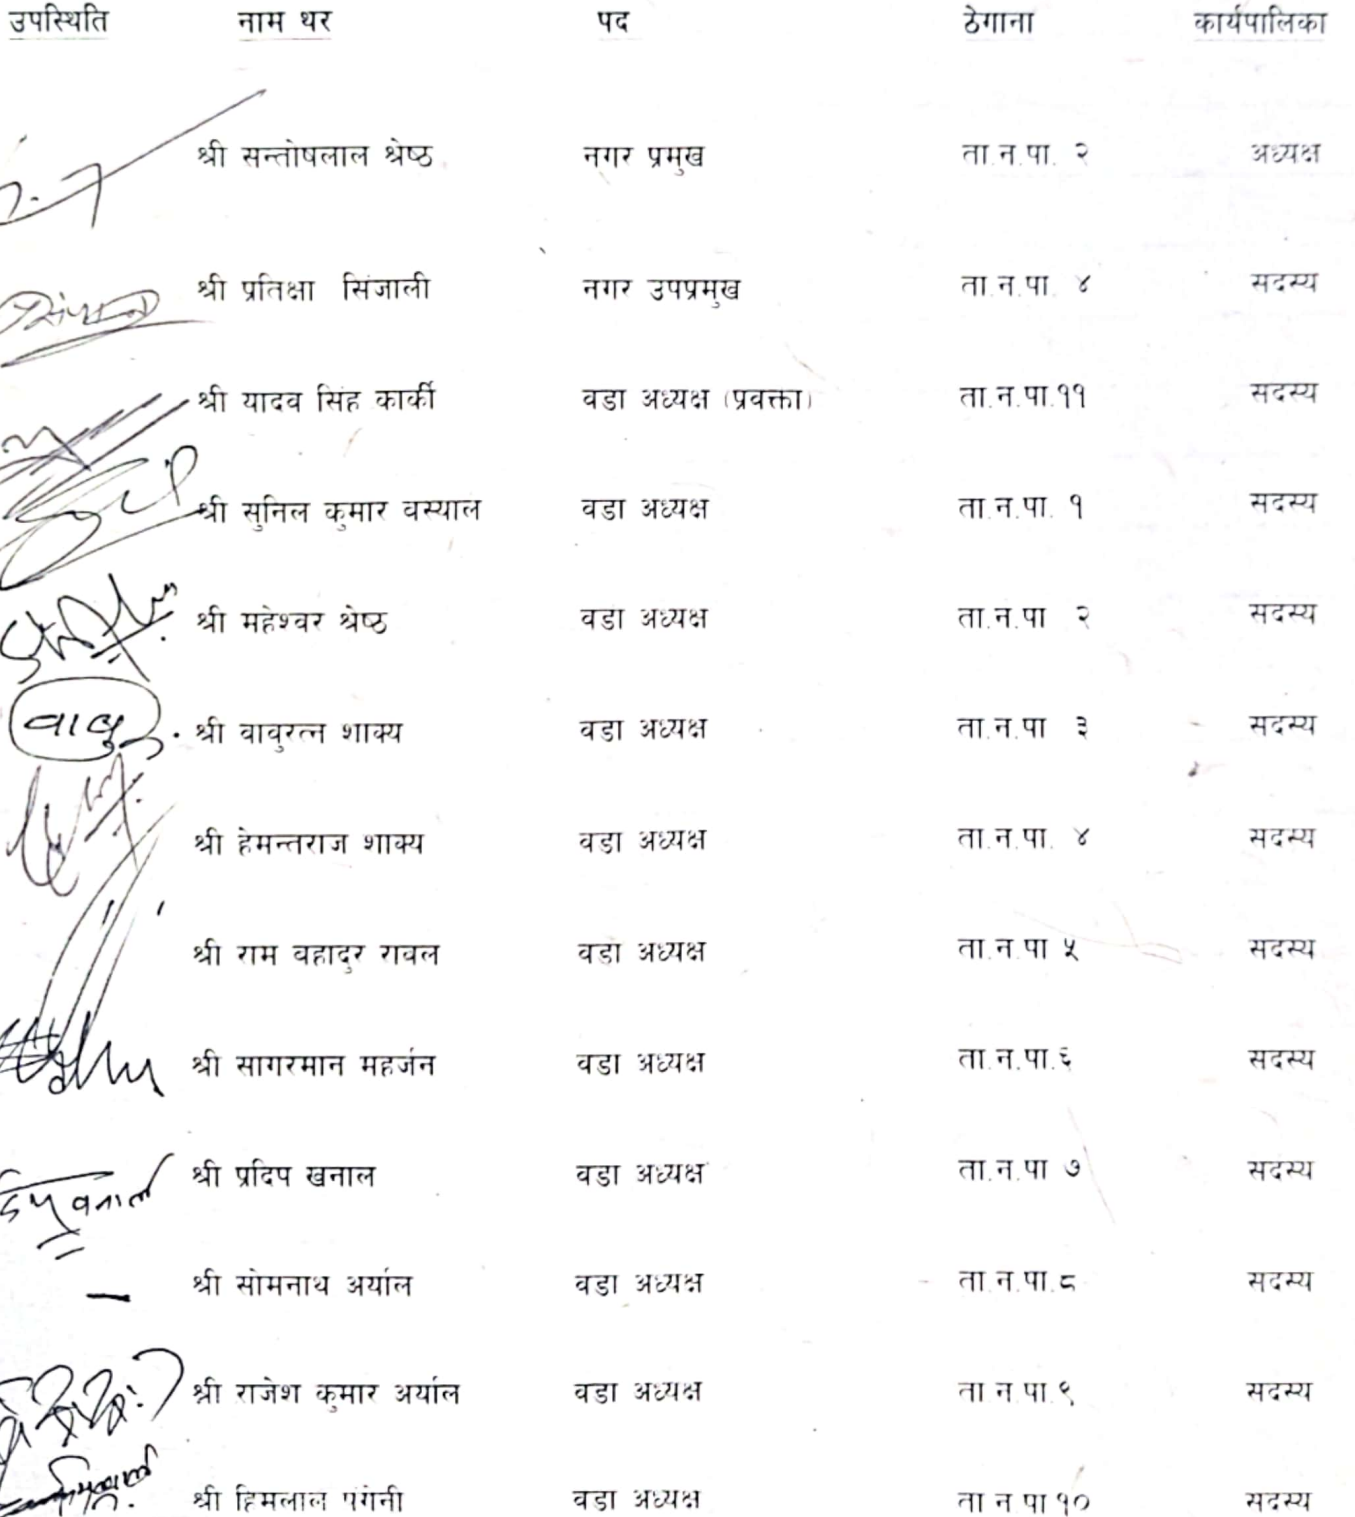 उपस्थिति नाम थर पद ठेगाना कार्यपालिका
श्री सन्तोषलाल श्रेष्ठ नगर प्रमुख ता.न.पा. २ अध्यक्ष
श्री प्रतिक्षा सिंजाली नगर उपप्रमुख ता.न.पा. ४ सदस्य
श्री यादव सिंह कार्की वडा अध्यक्ष (प्रवक्ता) ता.न.पा.११ सदस्य
श्री सुनिल कुमार वस्याल वडा अध्यक्ष ता.न.पा. १ सदस्य
श्री महेश्वर श्रेष्ठ वडा अध्यक्ष ता.न.पा २ सदस्य
वाबु श्री वावुरत्न शाक्य वडा अध्यक्ष ता.न.पा ३ सदस्य
श्री हेमन्तराज शाक्य वडा अध्यक्ष ता.न.पा. ४ सदस्य
श्री राम वहादुर रावल वडा अध्यक्ष ता.न.पा ५ सदस्य
श्री सागरमान महर्जन वडा अध्यक्ष ता.न.पा.६ सदस्य
श्री प्रदिप खनाल वडा अध्यक्ष ता.न.पा ७ सदस्य
श्री सोमनाथ अर्याल वडा अध्यक्ष ता.न.पा.८ सदस्य
श्री राजेश कुमार अर्याल वडा अध्यक्ष ता.न.पा.९ सदस्य
श्री हिमलाल पंगेनी वडा अध्यक्ष ता न पा १० सदस्य